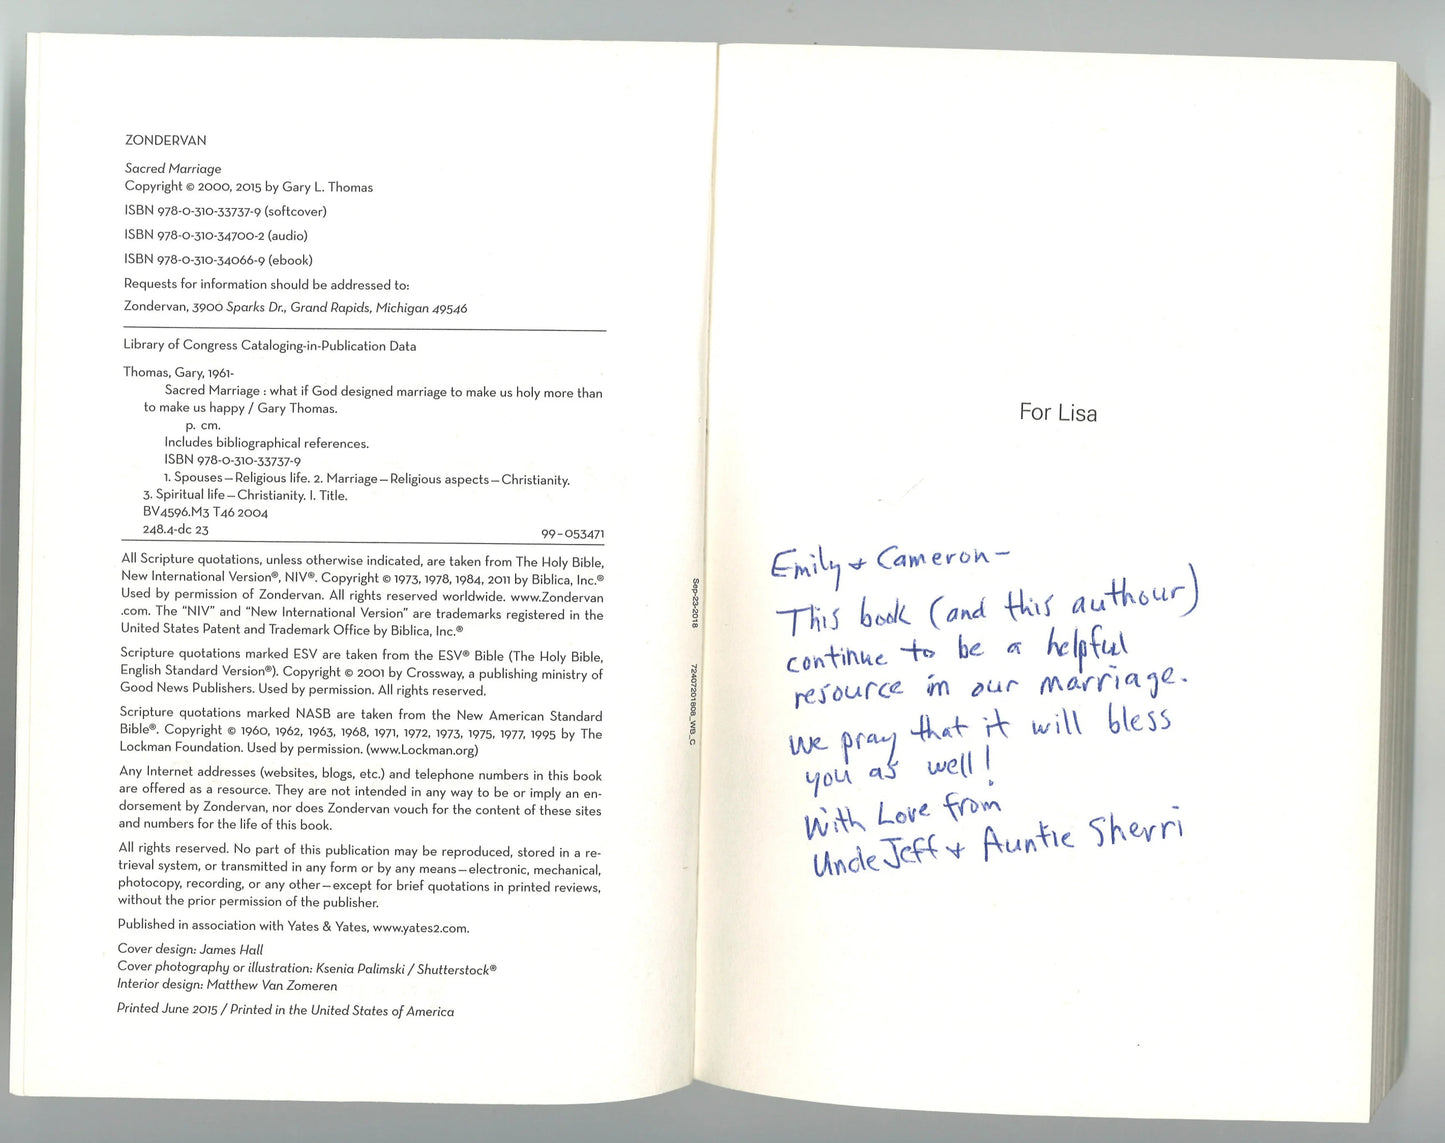 ZONDERVAN
Sacred Marriage
Copyright © 2000, 2015 by Gary L. Thomas
ISBN 978-0-310-33737-9 (softcover)
ISBN 978-0-310-34700-2 (audio)
ISBN 978-0-310-34066-9 (ebook)
Requests for information should be addressed to:
Zondervan, 3900 Sparks Dr., Grand Rapids, Michigan 49546
Library of Congress Cataloging-in-Publication Data
Thomas, Gary, 1961-
Sacred Marriage : what if God designed marriage to make us holy more than
to make us happy / Gary Thomas.
p. cm.
Includes bibliographical references.
ISBN 978-0-310-33737-9
1. Spouses—Religious life. 2. Marriage—Religious aspects—Christianity.
3. Spiritual life—Christianity. I. Title.
BV4596.M3 T46 2004
248.4-dc 23 99-053471
All Scripture quotations, unless otherwise indicated, are taken from The Holy Bible,
New International Version®, NIV®. Copyright © 1973, 1978, 1984, 2011 by Biblica, Inc.®
Used by permission of Zondervan. All rights reserved worldwide. www.Zondervan
.com. The “NIV” and “New International Version” are trademarks registered in the
United States Patent and Trademark Office by Biblica, Inc.®
Scripture quotations marked ESV are taken from the ESV® Bible (The Holy Bible,
English Standard Version®). Copyright © 2001 by Crossway, a publishing ministry of
Good News Publishers. Used by permission. All rights reserved.
Scripture quotations marked NASB are taken from the New American Standard
Bible®. Copyright © 1960, 1962, 1963, 1968, 1971, 1972, 1973, 1975, 1977, 1995 by The
Lockman Foundation. Used by permission. (www.Lockman.org)
Any Internet addresses (websites, blogs, etc.) and telephone numbers in this book
are offered as a resource. They are not intended in any way to be or imply an en-
dorsement by Zondervan, nor does Zondervan vouch for the content of these sites
and numbers for the life of this book.
All rights reserved. No part of this publication may be reproduced, stored in a re-
trieval system, or transmitted in any form or by any means—electronic, mechanical,
photocopy, recording, or any other—except for brief quotations in printed reviews,
without the prior permission of the publisher.
Published in association with Yates & Yates, www.yates2.com.
Cover design: James Hall
Cover photography or illustration: Ksenia Palimski / Shutterstock®
Interior design: Matthew Van Zomeren
Printed June 2015 / Printed in the United States of America
Sep-23-2018 72407201808_WB_C
For Lisa
Emily + Cameron—
This book (and this authour)
continue to be a helpful
resource in our marriage.
We pray that it will bless
you as well!
With Love from
Uncle Jeff + Auntie Sherri